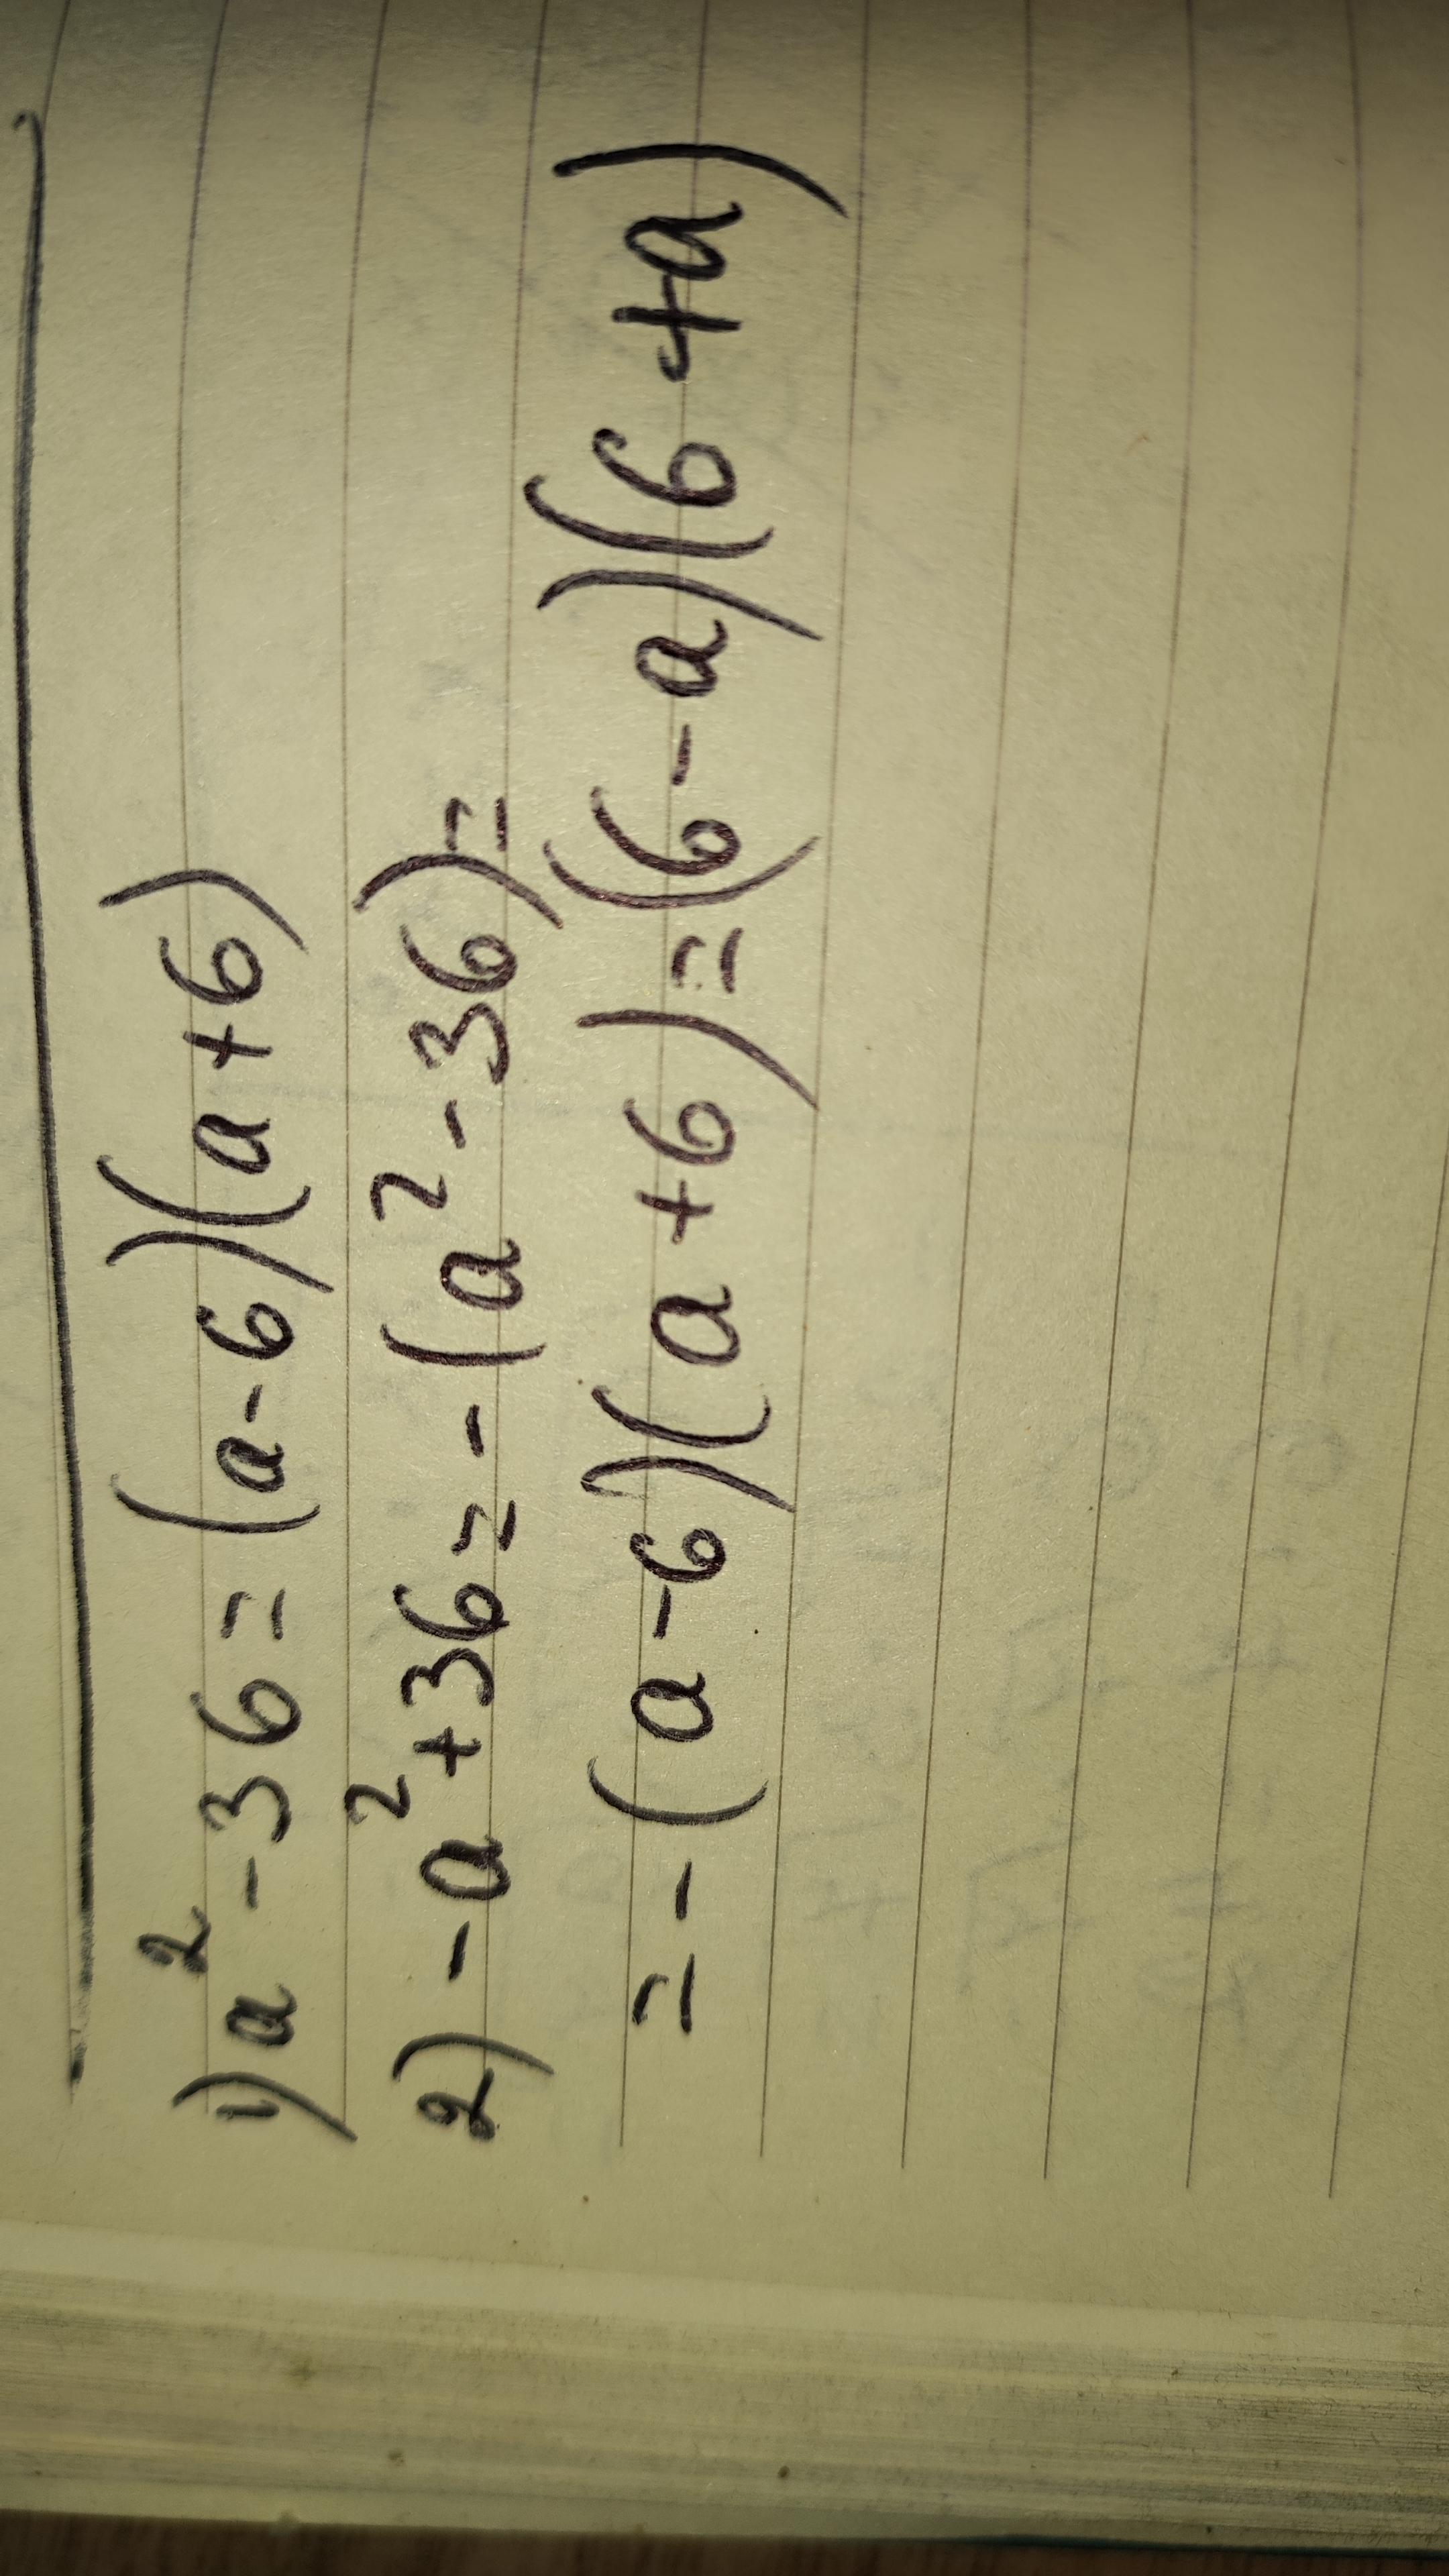 1) a² - 36 = (a - 6)(a + 6)
2) - a² + 36 = - (a² - 36) =
= - (a - 6)(a + 6) = (6 - a)(6 + a)